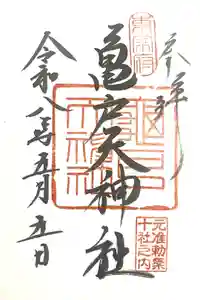 奉拝
東宰府
亀戸天神社
亀戸天神社
元准勅祭
十社之内
令和八年五月五日